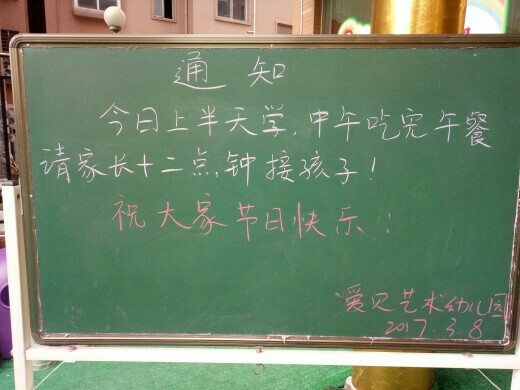 通知
今日上半天学,中午吃完午餐
请家长十二点钟接孩子!
祝大家节日快乐!
爱贝艺术幼儿园
2017.3.8